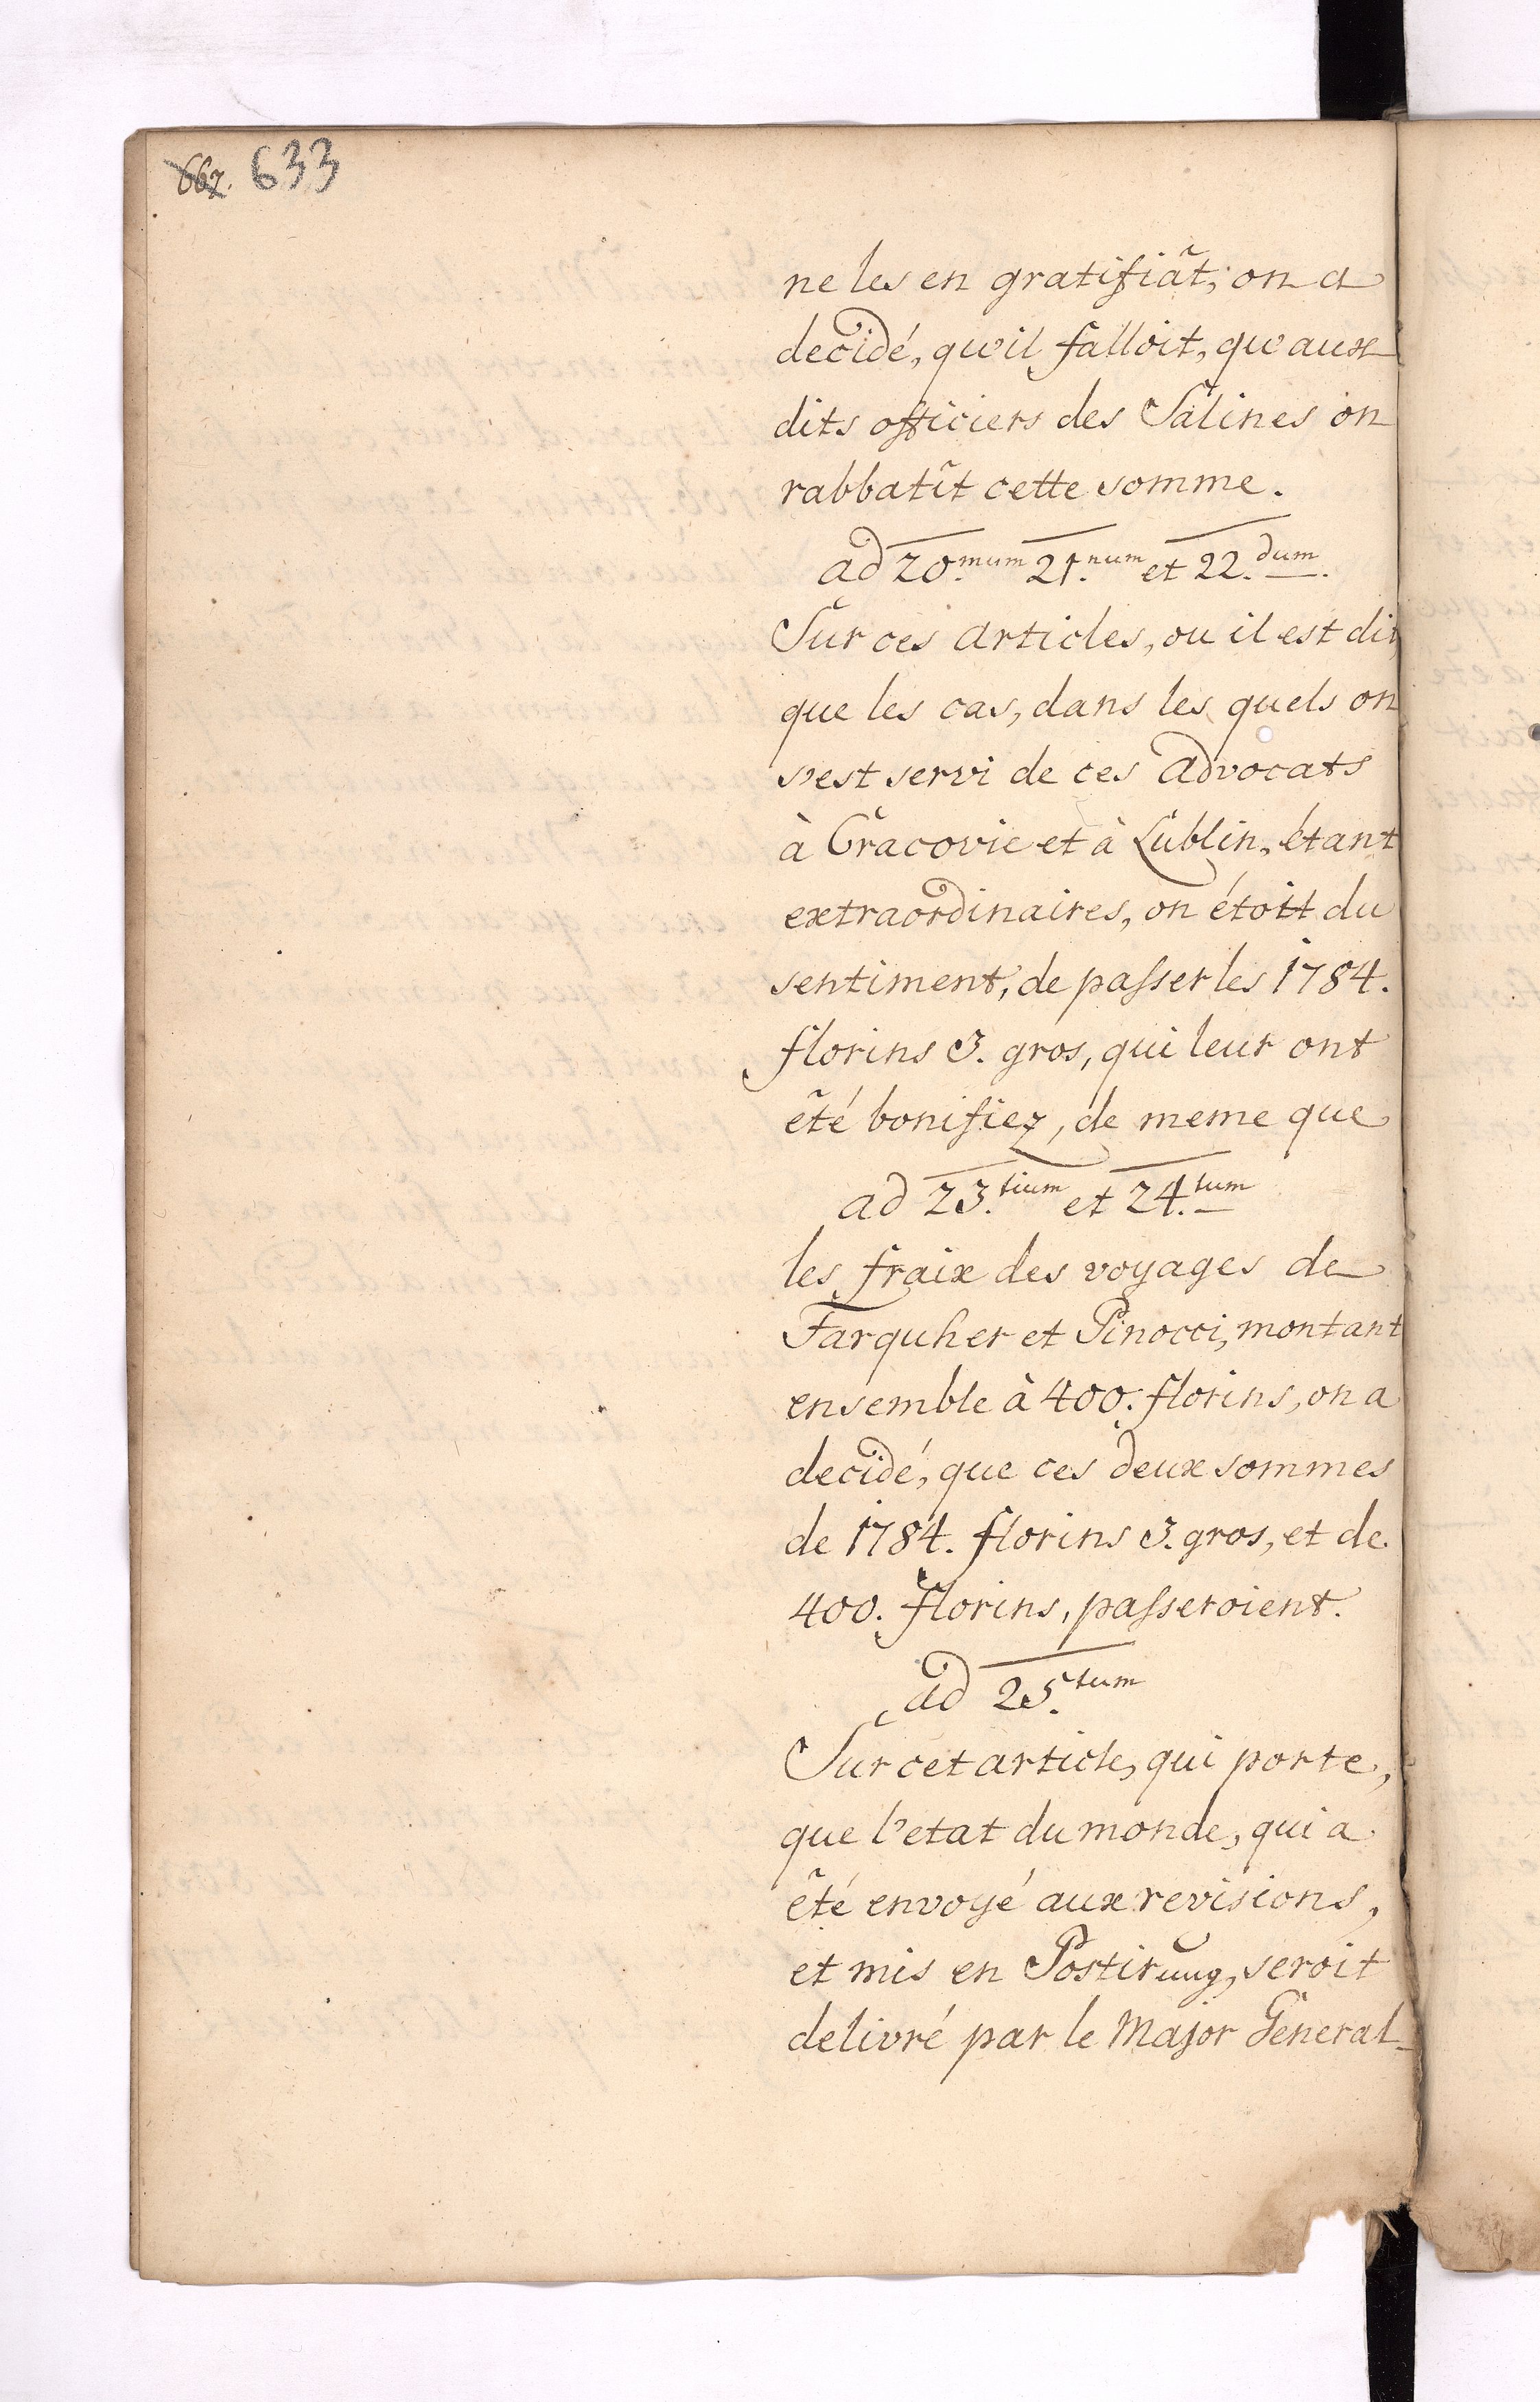 667. 633
ne les en gratifiât; on a
decidé, qu'il falloit, qu'aux
dits officiers des Salines on
rabbatît cette somme.
ad 20.mum 21.num et 22.dum.
Sur ces articles, ou il est dit,
que les cas, dans les quels on
s'est servi de ces advocats
à Cracovie et à Lublin, étant
extraordinaires, on étoit du
sentiment, de passer les 1784.
florins 3. gros, qui leur ont
êté bonifiez, de meme que
ad 23.tium et 24.tum
les fraix des voyages de
Farquher et Pinocci, montant
ensemble à 400. florins, on a
decidé, que ces deux sommes
de 1784. florins 3. gros, et de
400. florins, passeroient.
ad 25.tum
Sur cet article, qui porte,
que l'etat du monde, qui a
êté envoyé aux revisions,
et mis en Postirung, seroit
delivré par le Major General